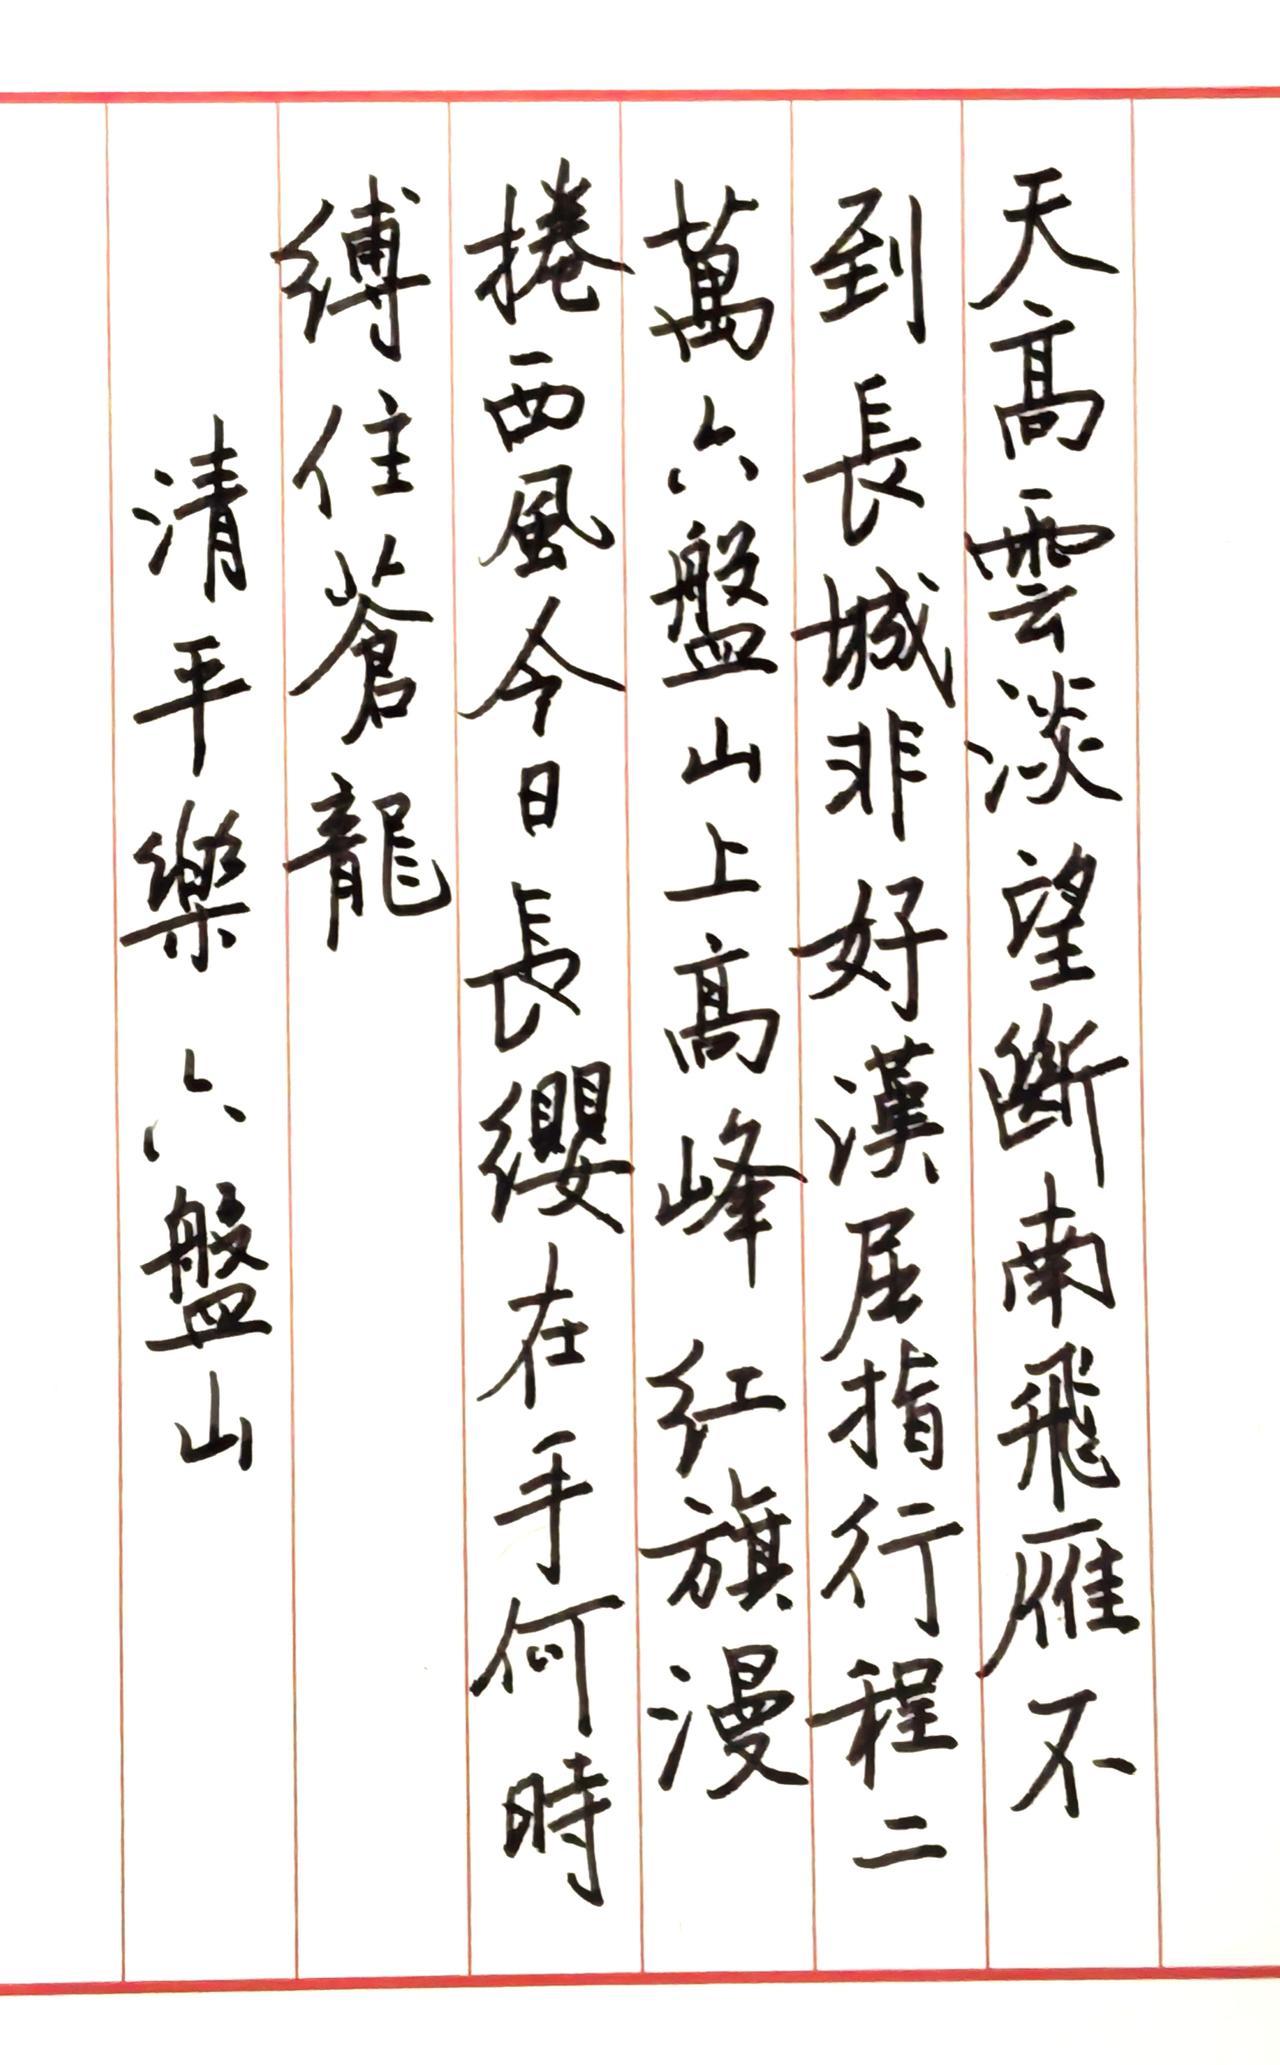 天高雲淡望斷南飛雁不
到長城非好漢屈指行程二
萬六盤山上高峰红旗漫
捲西風今日長纓在手何時
縛住蒼龍
清平樂六盤山